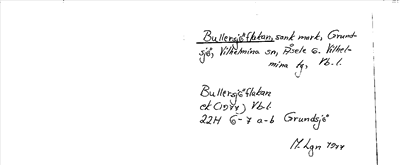 Bullersjöflatan, sank mark, Grund-
sjö, Vilhelmina sn, Åsele o. Vilhel-
mina tg, Vb. l.
Bullersjöflatan
ek (1977) Vb. l.
22H 6-7 a-b Grundsjö
M. Lgn 1977